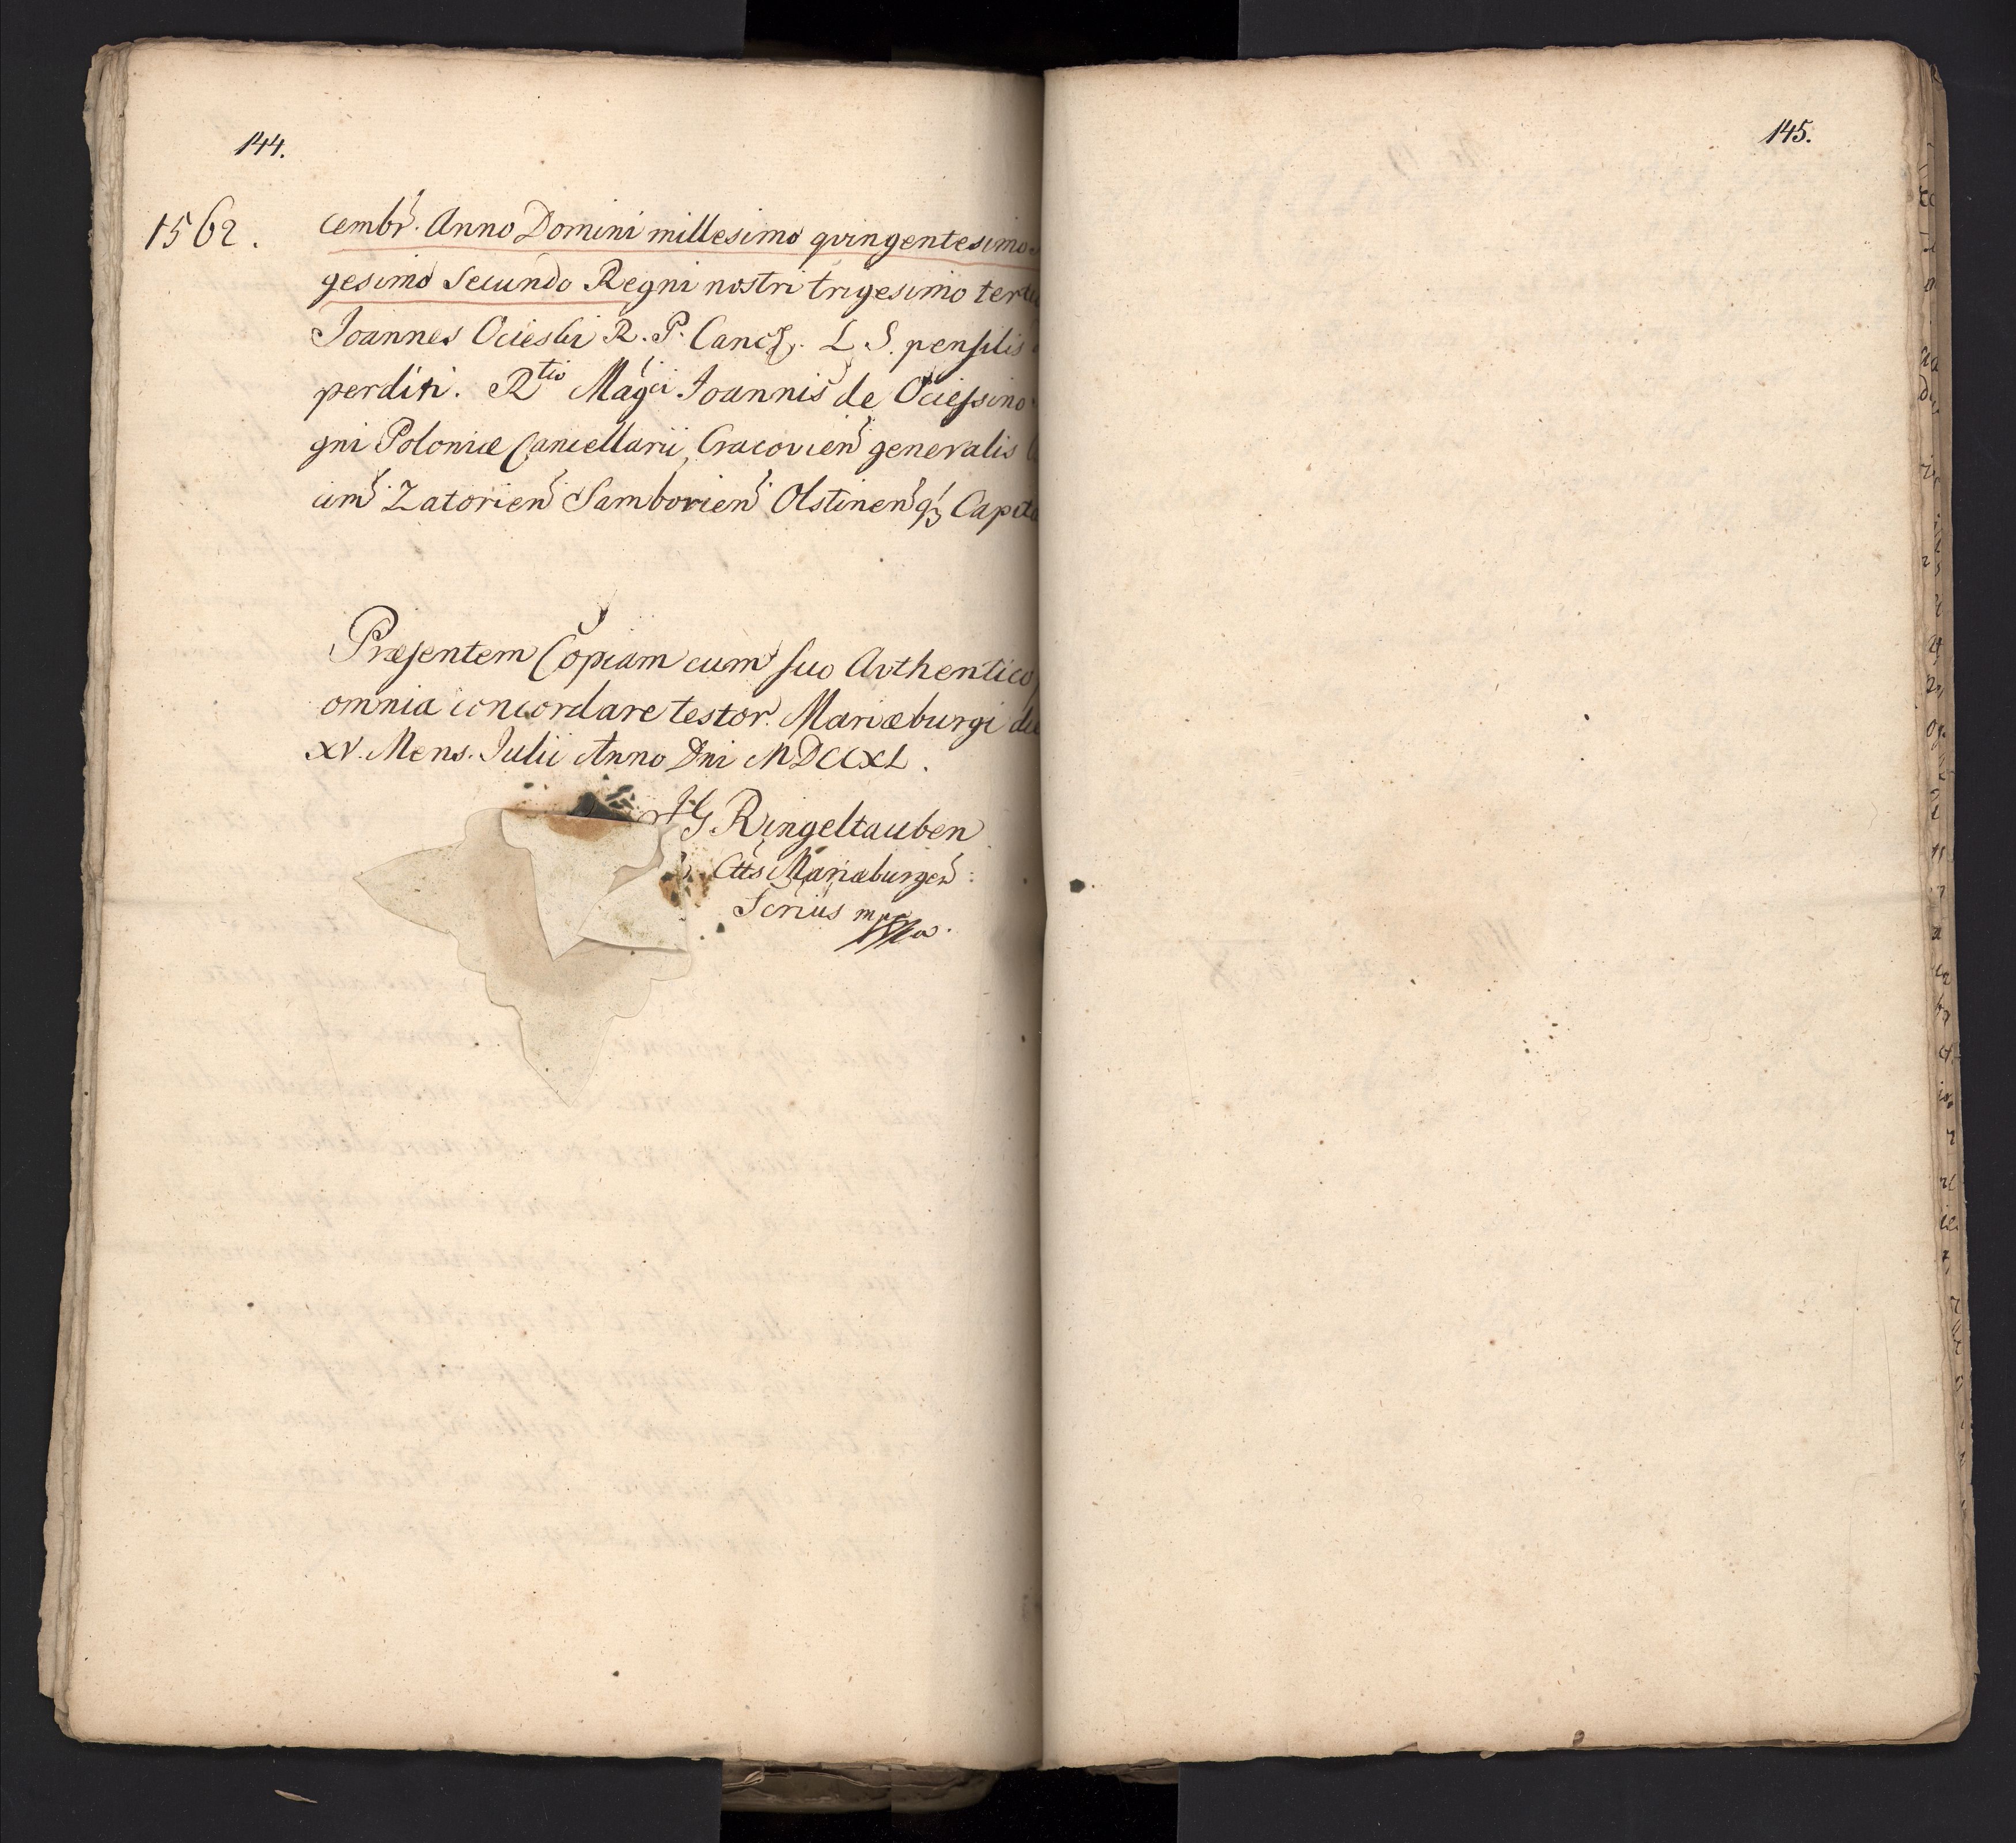 144.
1562.
cembr. Anno Domini millesimo qvingentesimo
gesimo Secundo Regni nostri trigesimo tertio
Joannes Ocieski R. P. Canc. L. S. pensilis
perditi. Rtio Magci Joannis de Ociessino
gni Poloniæ Cancellarii, Cracovien generalis
cim Zatorien Samborien Olstinenqz Capita
Præsentem Copiam cum suo Avthentico
omnia concordare testor. Mariæburgi die
XV. Mens. Julii Anno Dni MDCCXL.
Ringeltauben
Ctts Mariæburgen:
Scrius mppa.
145.